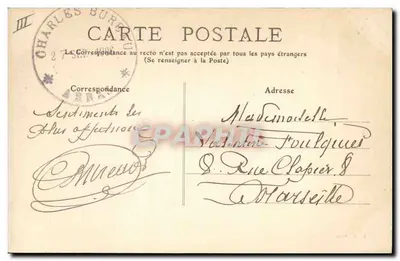 III
CHARLES BUREAU
CARTE POSTALE
La Correspondance au recto n'est pas acceptée par tous les pays étrangers
(Se renseigner à la Poste)
Correspondance
Sentiments les
plus affectueux
Adresse
Mademoiselle
Foulquier
8 Rue Clapier 8
Marseille
CPARAMA